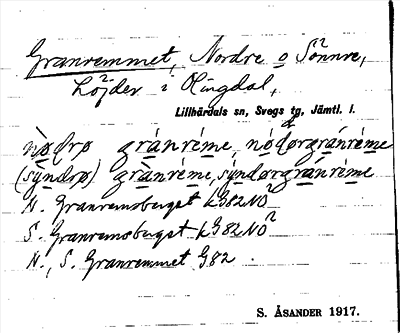 Granremmet, Nordre o Sönnre,
Löjder i Klingdal,
Lillhärdals sn, Svegs tg, Jämtl. l.
nødrø grànréme, nódørgránrème
(sýndrø) grànréme, sýndørgránrème
N. Granremsberget kG82NO
S. Granremsberget kG82NO
N., S. Granremmet G82
S. ÅSANDER 1917.